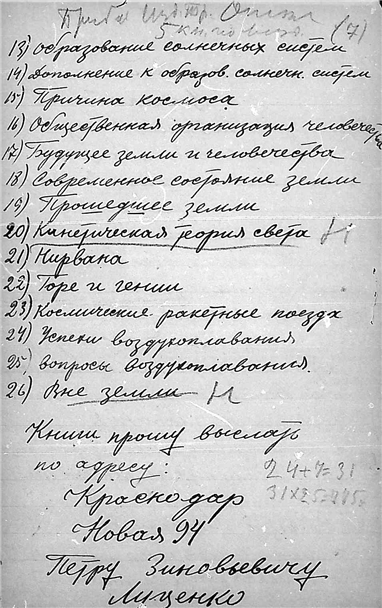 (7)
13) Образование солнечных систем
14) Дополнение к образов. солнечн. систем
15) Причина космоса
16) Общественная организация человечества
17) Будущее земли и человечества
18) Современное состояние земли
19) Прошедшее земли
20) Кинетическая теория света Н
21) Нирвана
22) Горе и гении
23) Космические ракетные поезда
24) Успехи воздухоплавания
25) вопросы воздухоплавания.
26) Вне земли Н
Книги прошу выслать
по адресу:
24+7=31
Краснодар
Новая 94
Петру Зиновьевичу
Лиценко